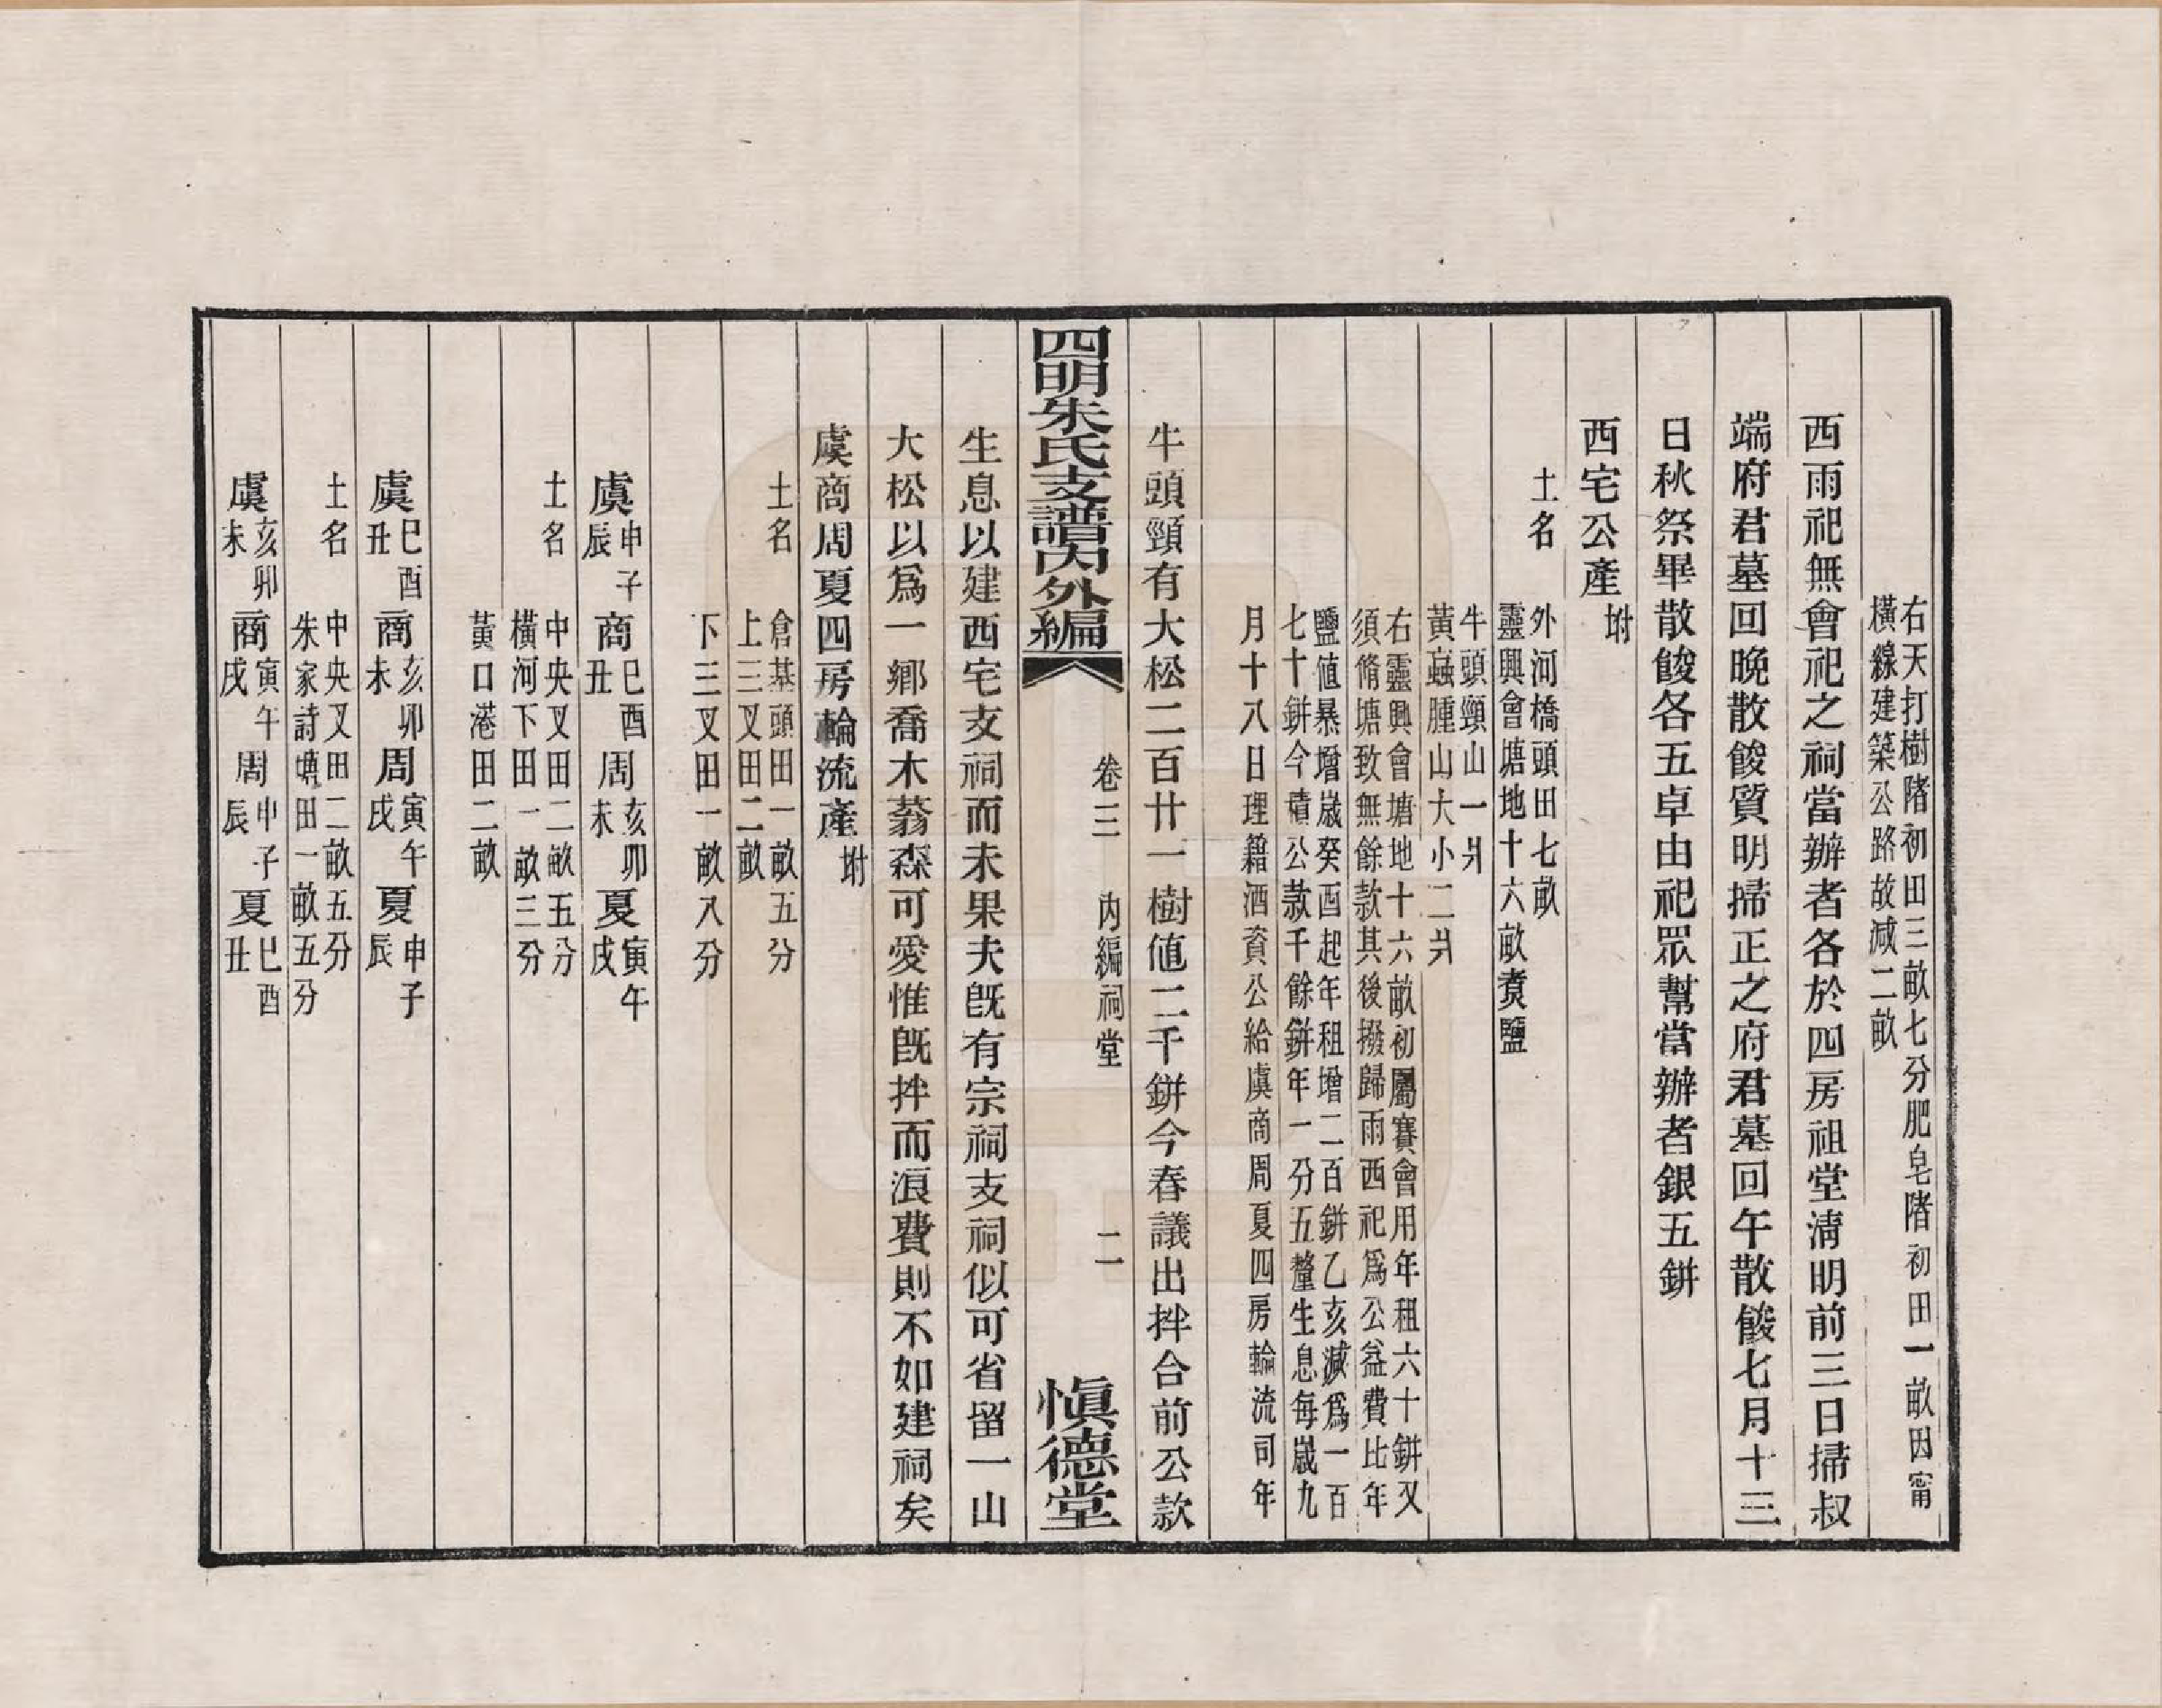 右天打樹階初田三畝七分肥皂階初田一畝因甯
橫線建築公路故減二畝
西雨祀無會祀之祠當辦者各於四房祖堂淸明前三日掃叔
端府君墓回晚散餕質明掃正之府君墓回午散餕七月十三
日秋祭畢散餕各五卓由祀眾幫當辦者銀五鉼
西宅公產坿
土名
外河橋頭田七畝
靈興會塘地十六畝煑鹽
牛頭頸山一爿
黃蝱腫山大小二爿
右靈興會塘地十六畝初屬賽會用年租六十鉼又
須脩塘致無餘款其後撥歸雨西祀爲公益費比年
鹽値暴增歲癸酉起年租增二百鉼乙亥減爲一百
七十鉼今積公款千餘鉼年一分五釐生息每歲九
月十八日理籍酒資公給虞商周夏四房輪流司年
牛頭頸有大松二百廿一樹値二千鉼今春議出拌合前公款
四明朱氏支譜內外編
卷三
內編祠堂
二
愼德堂
生息以建西宅支祠而未果夫旣有宗祠支祠似可省留一山
大松以爲一鄉喬木蓊森可愛惟旣拌而浪費則不如建祠矣
虞商周夏四房輪流產坿
土名
倉基頭田一畝五分
上三叉田二畝
下三叉田一畝八分
虞申子辰商巳酉丑周亥卯未夏寅午戌
土名
中央叉田二畝五分
橫河下田一畝三分
黃口港田二畝
虞巳酉丑商亥卯未周寅午戌夏申子辰
土名
中央叉田二畝五分
朱家詩壋田一畝五分
虞亥卯未商寅午戌周申子辰夏巳酉丑